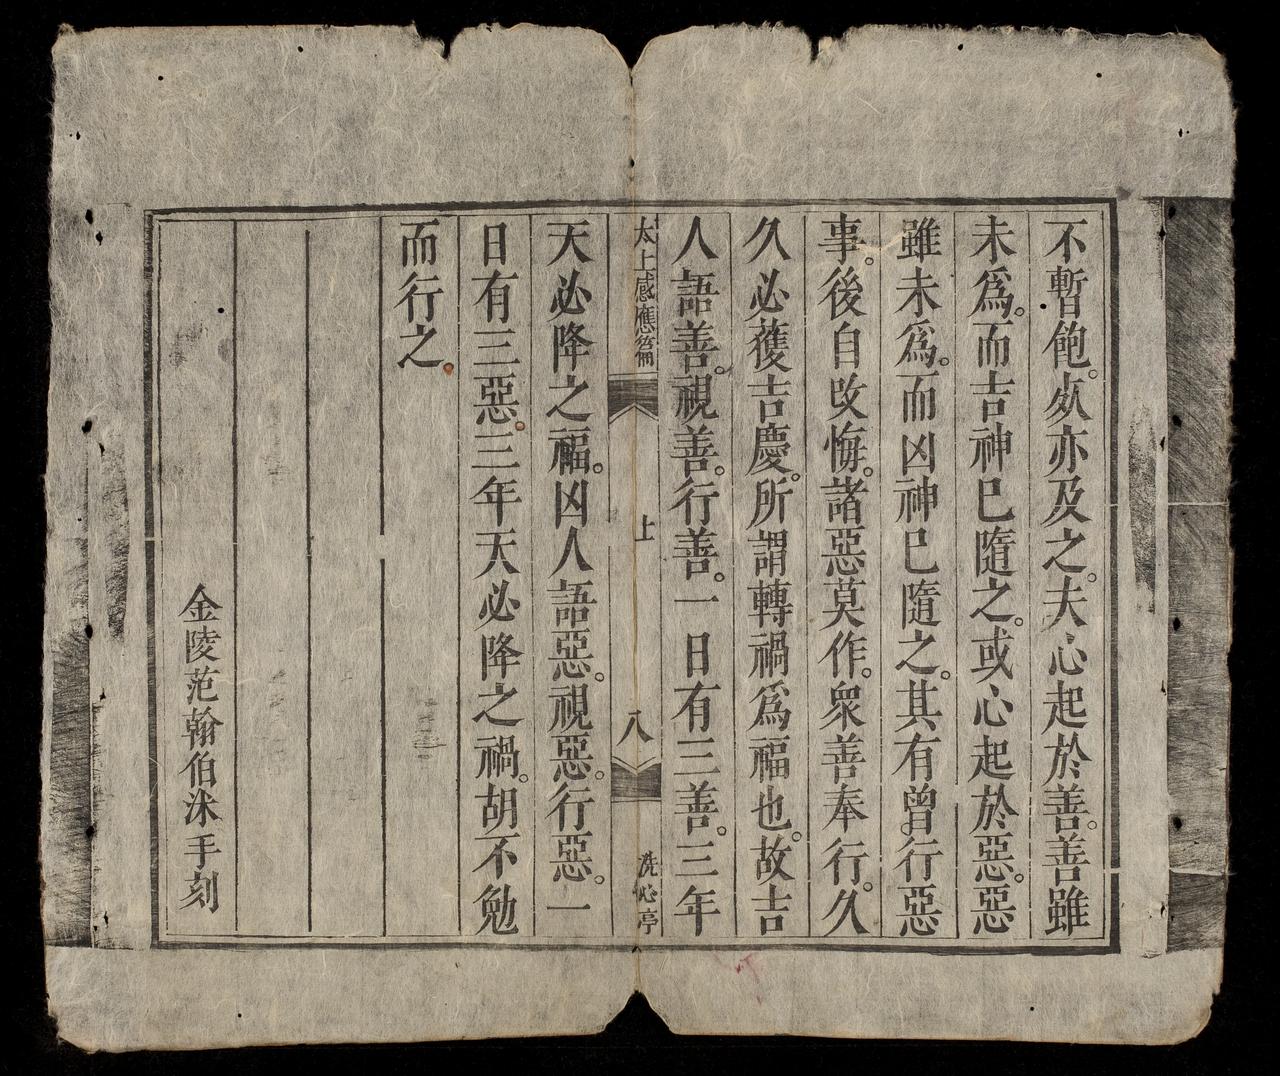 不暫飽。灾亦及之。夫心起於善。善雖
未爲。而吉神已隨之。或心起於惡。惡
雖未爲。而凶神已隨之。其有曾行惡
事。後自改悔。諸惡莫作。衆善奉行。久
久必獲吉慶。所謂轉禍爲福也。故吉
人語善。視善。行善。一日有三善。三年
太上感應篇
上
八
洗心亭
天必降之福。凶人語惡。視惡。行惡。一
日有三惡。三年天必降之禍。胡不勉
而行之。
金陵范翰伯洙手刻